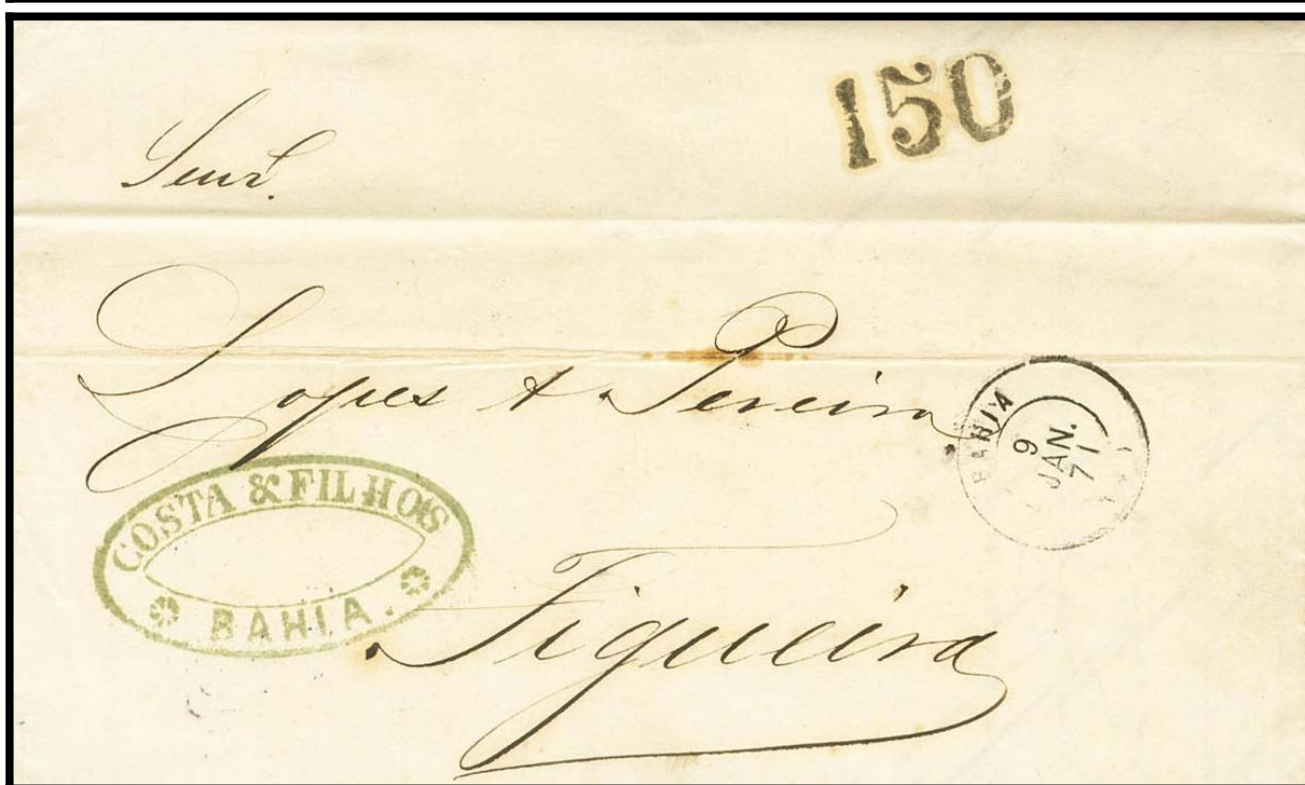 150
Lopes & Pereira
BAHIA
9
JAN.
71
COSTA & FILHOS
BAHIA.
Figueira